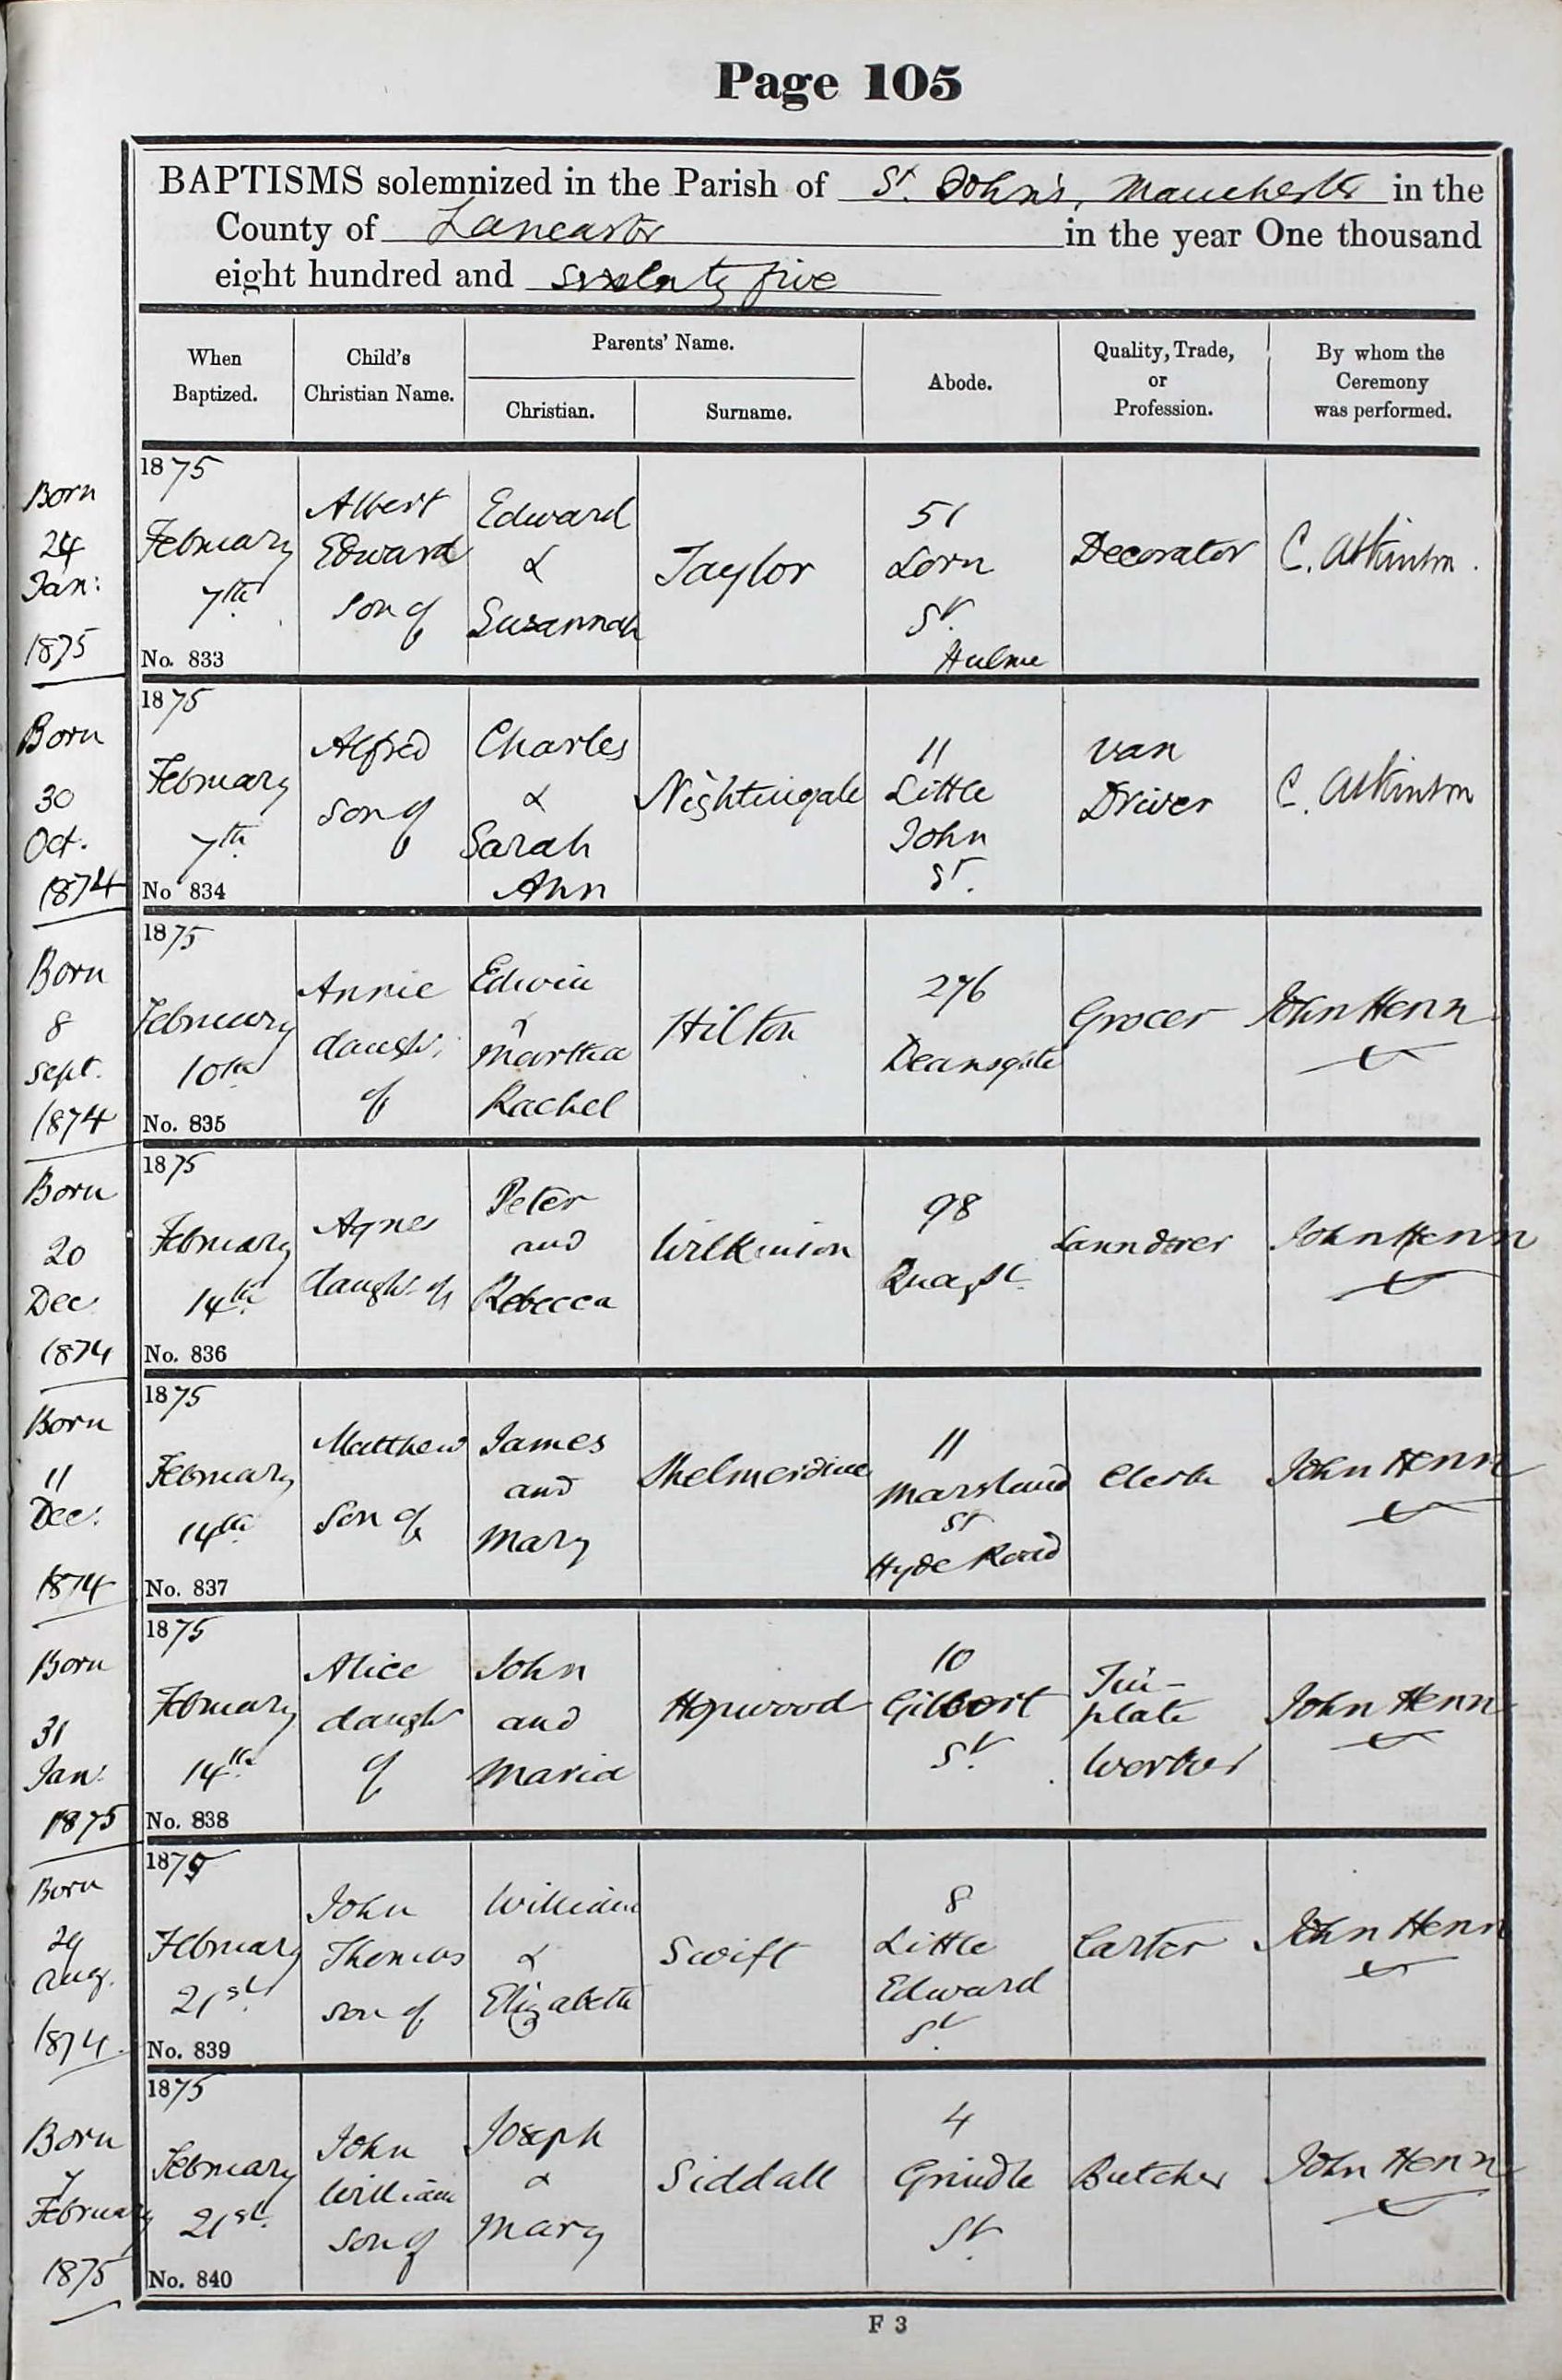 Page 105
BAPTISMS solemnized in the Parish of St. John's, Manchester in the
County of Lancaster in the year One thousand
eight hundred and seventy five
When Baptized.
Child's Christian Name.
Parents' Name.
Christian.
Surname.
Abode.
Quality, Trade, or Profession.
By whom the Ceremony was performed.
Born
24
Jan:
1875
1875
February
7th
No. 833
Albert
Edward
son of
Edward
&
Susannah
Taylor
51
Lorn
St.
Hulme
Decorator
C. Atkinson.
Born
30
Oct.
1874
1875
February
7th
No 834
Alfred
son of
Charles
&
Sarah
Ann
Nightingale
11
Little
John
St.
Van
Driver
C. Atkinson
Born
8
Sept.
1874
1875
February
10th
No. 835
Annie
daugh.
of
Edwin
&
Martha
Rachel
Hilton
276
Deansgate
Grocer
John Henn
Born
20
Dec
1874
1875
February
14th
No. 836
Agnes
daugh. of
Peter
and
Rebecca
Wilkinson
98
Quay St.
Launderer
John Henn
Born
11
Dec:
1874
1875
February
14th
No. 837
Matthew
son of
James
and
Mary
Shelmerdine
11
Marsland
St
Hyde Road
Clerk
John Henn
Born
31
Jan:
1875
1875
February
14th
No. 838
Alice
daugh
of
John
and
Maria
Hopwood
10
Gilbert
St.
Tin-
plate
Worker
John Henn
Born
29
Aug.
1874
1875
February
21st
No. 839
John
Thomas
son of
William
&
Elizabeth
Swift
8
Little
Edward
St.
Carter
John Henn
Born
7
February
1875
1875
February
21st
No. 840
John
William
son of
Joseph
&
Mary
Siddall
4
Grindle
St.
Butcher
John Henn
F 3